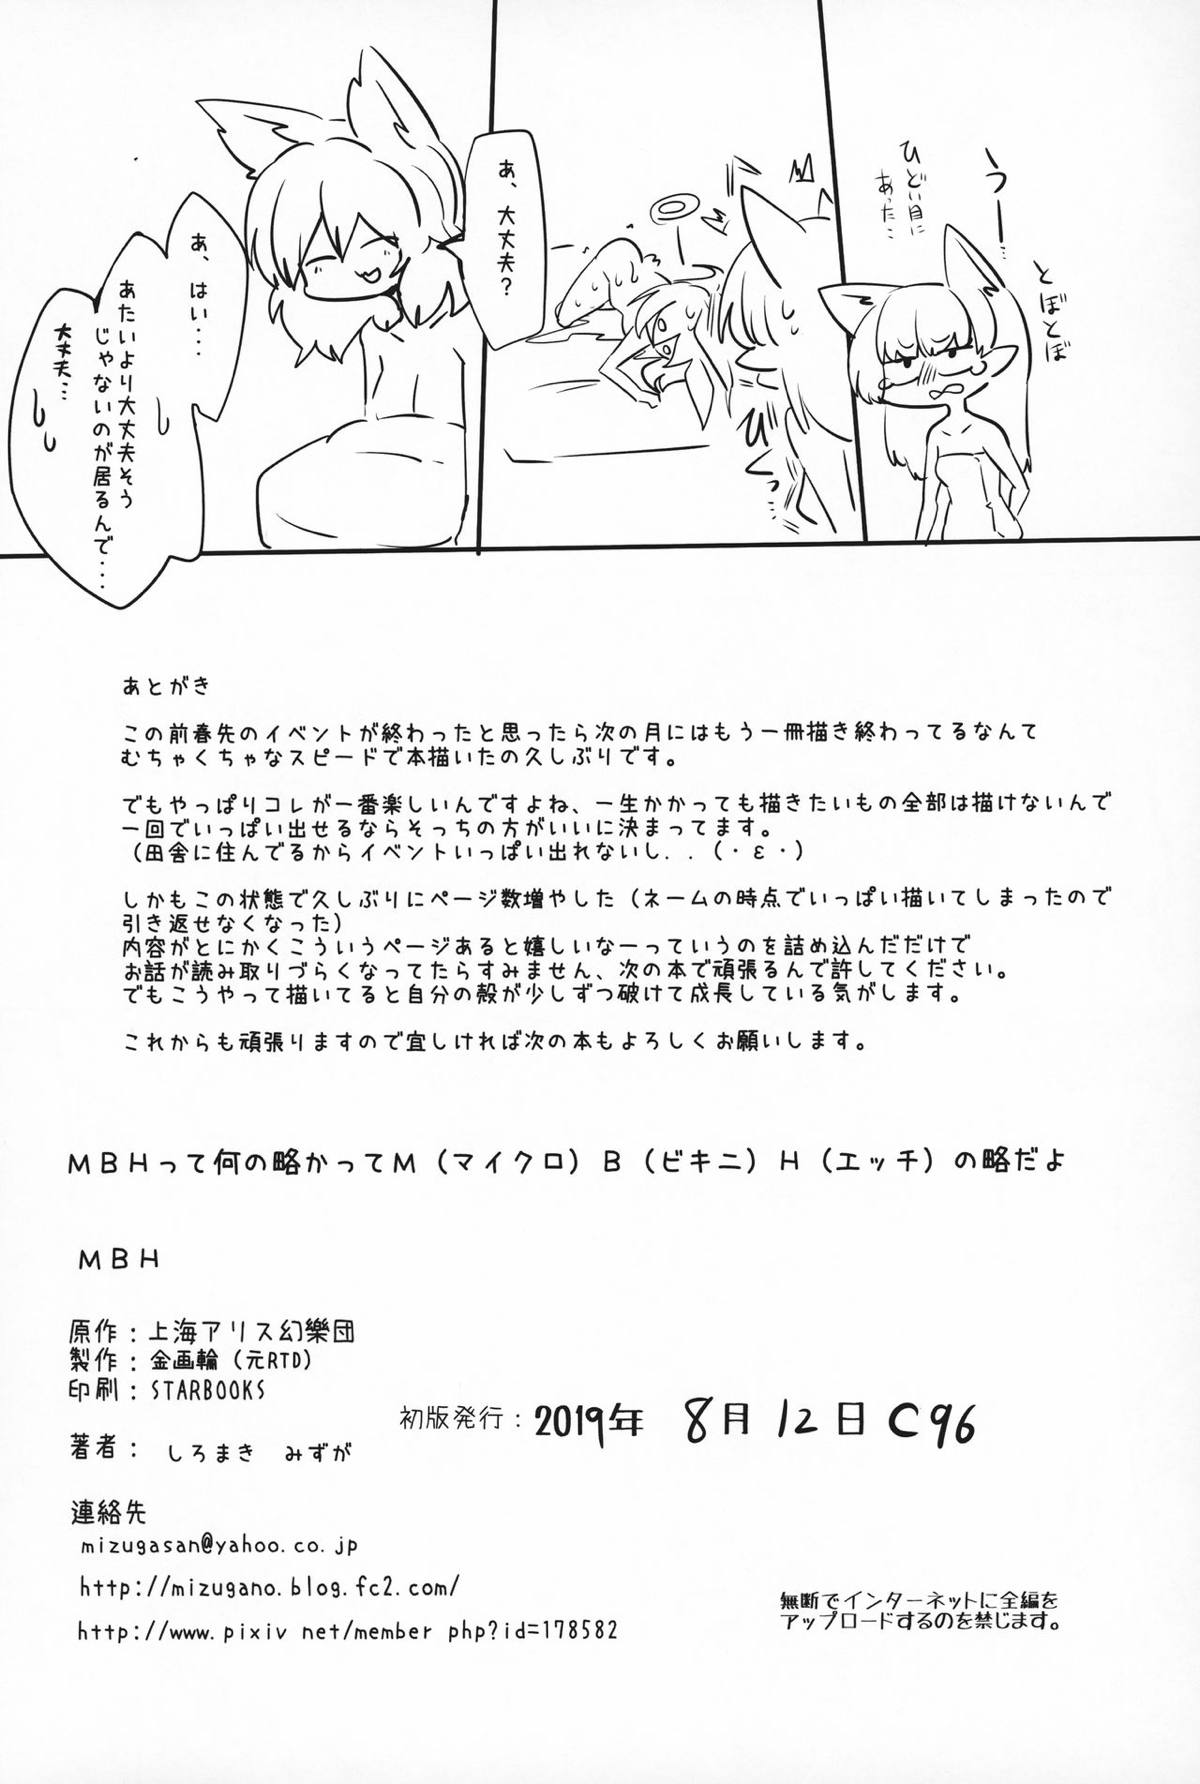 うー…
ひどい目に
あった…
とぼとぼ
びくっ
あ、大丈夫？
あ、はい....
あたいより大丈夫そう
じゃないのが居るんで....
大丈夫…
あとがき
この前春先のイベントが終わったと思ったら次の月にはもう一冊描き終わってるなんて
むちゃくちゃなスピードで本描いたの久しぶりです。
でもやっぱりコレが一番楽しいんですよね、一生かかっても描きたいもの全部は描けないんで
一回でいっぱい出せるならそっちの方がいいに決まってます。
（田舎に住んでるからイベントいっぱい出れないし．．（・ε・）
しかもこの状態で久しぶりにページ数増やした（ネームの時点でいっぱい描いてしまったので
引き返せなくなった）
内容がとにかくこういうページあると嬉しいなーっていうのを詰め込んだだけで
お話が読み取りづらくなってたらすみません、次の本で頑張るんで許してください。
でもこうやって描いてると自分の殻が少しずつ破けて成長している気がします。
これからも頑張りますので宜しければ次の本もよろしくお願いします。
ＭＢＨって何の略かってＭ（マイクロ）Ｂ（ビキニ）Ｈ（エッチ）の略だよ
ＭＢＨ
原作：上海アリス幻樂団
製作：金画輪（元RTD）
印刷：STARBOOKS
初版発行：2019年 8月12日 C96
著者： しろまき みずが
連絡先
mizugasan@yahoo.co.jp
http://mizugano.blog.fc2.com/
http://www.pixiv net/member php?id=178582
無断でインターネットに全編を
アップロードするのを禁じます。